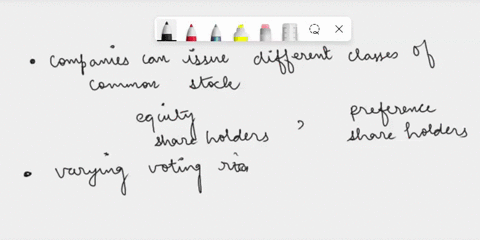 • companies can issue different classes of
common stock
equity , preference
share holders share holders
• varying voting